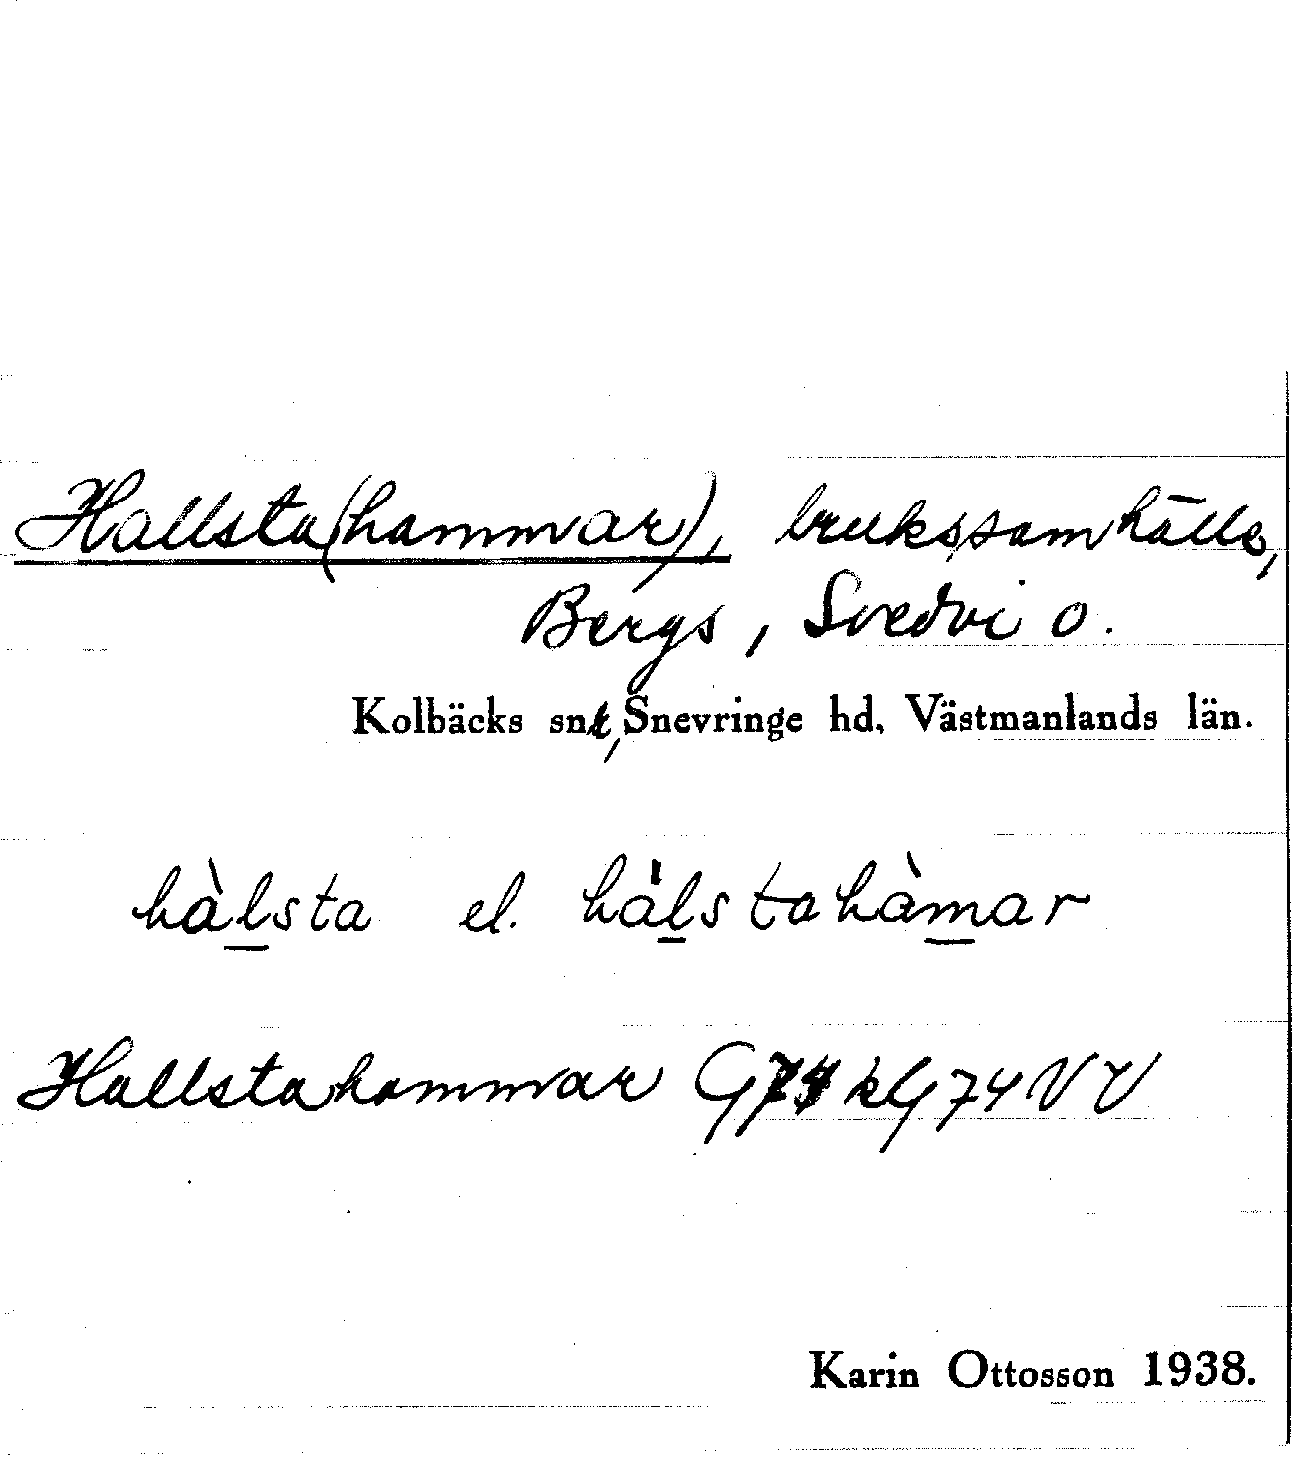 Hallsta(hammar), brukssamhälle,
Bergs, Svedvi o.
Kolbäcks snr, Snevringe hd, Västmanlands län.
hàl̲sta el. hál̲stahàm̲ar
Hallstahammar G74 kG 74 VV
Karin Ottosson 1938.